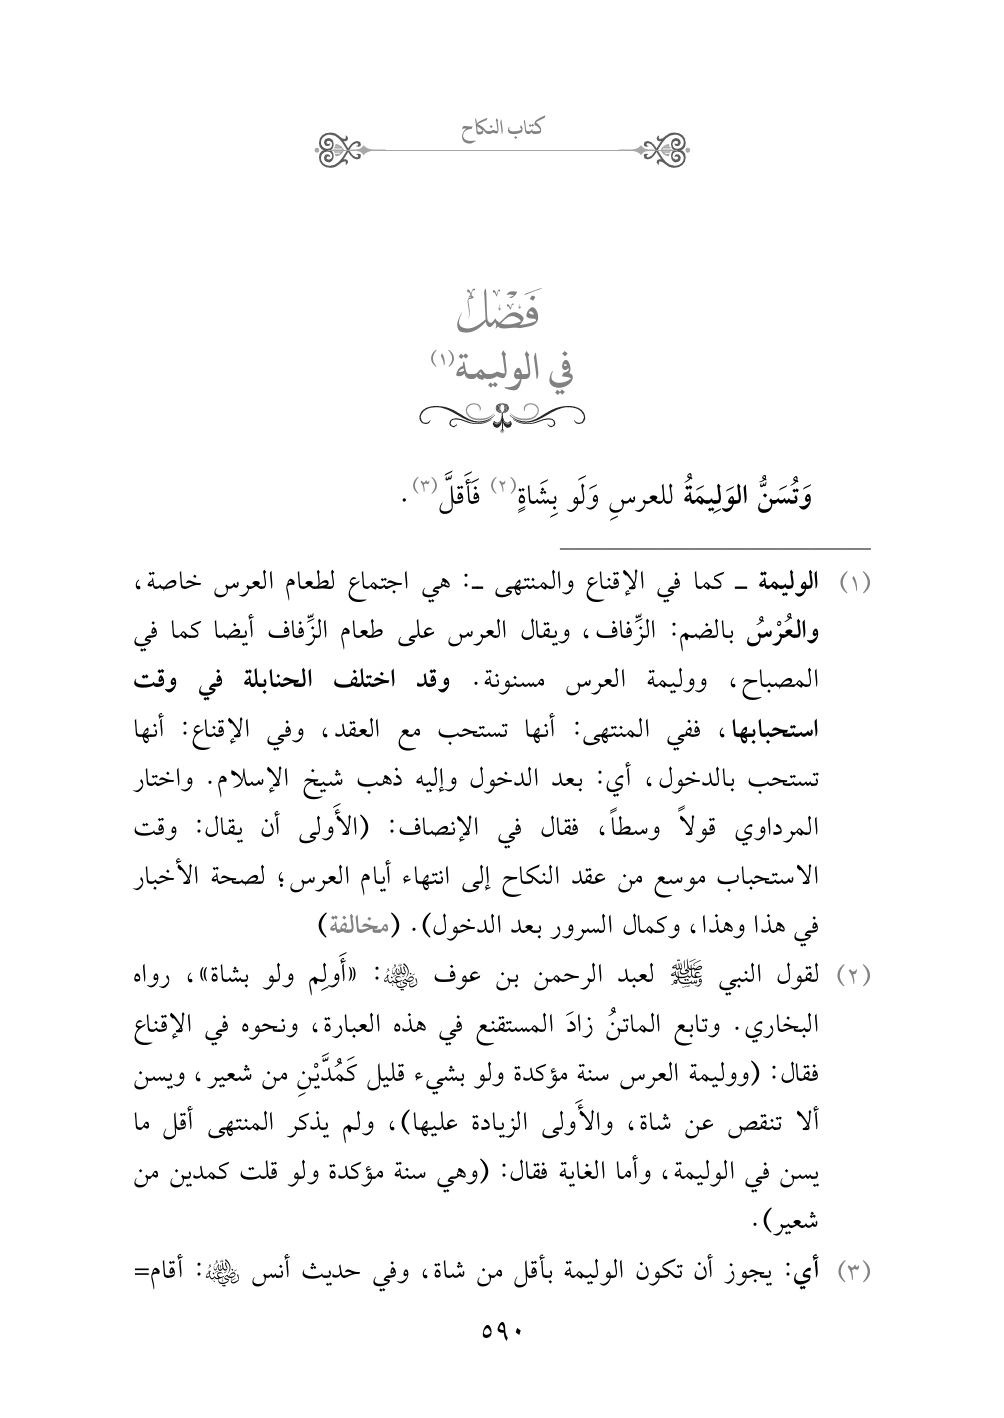 كتاب النكاح
فَصْل
في الوليمة(١)
وَتُسَنُّ الوَلِيمَةُ للعرسِ وَلَو بِشَاةٍ(٢) فَأَقلَّ(٣).
(١) الوليمة ـ كما في الإقناع والمنتهى ـ: هي اجتماع لطعام العرس خاصة،
والعُرْسُ بالضم: الزِّفاف، ويقال العرس على طعام الزِّفاف أيضا كما في
المصباح، ووليمة العرس مسنونة. وقد اختلف الحنابلة في وقت
استحبابها، ففي المنتهى: أنها تستحب مع العقد، وفي الإقناع: أنها
تستحب بالدخول، أي: بعد الدخول وإليه ذهب شيخ الإسلام. واختار
المرداوي قولاً وسطاً، فقال في الإنصاف: (الأَولى أن يقال: وقت
الاستحباب موسع من عقد النكاح إلى انتهاء أيام العرس؛ لصحة الأخبار
في هذا وهذا، وكمال السرور بعد الدخول). (مخالفة)
(٢) لقول النبي ﷺ لعبد الرحمن بن عوف رضي الله عنه: «أَولِم ولو بشاة»، رواه
البخاري. وتابع الماتنُ زادَ المستقنع في هذه العبارة، ونحوه في الإقناع
فقال: (ووليمة العرس سنة مؤكدة ولو بشيء قليل كَمُدَّيْنِ من شعير، ويسن
ألا تنقص عن شاة، والأَولى الزيادة عليها)، ولم يذكر المنتهى أقل ما
يسن في الوليمة، وأما الغاية فقال: (وهي سنة مؤكدة ولو قلت كمدين من
شعير).
(٣) أي: يجوز أن تكون الوليمة بأقل من شاة، وفي حديث أنس رضي الله عنه: أقام=
٥٩٠